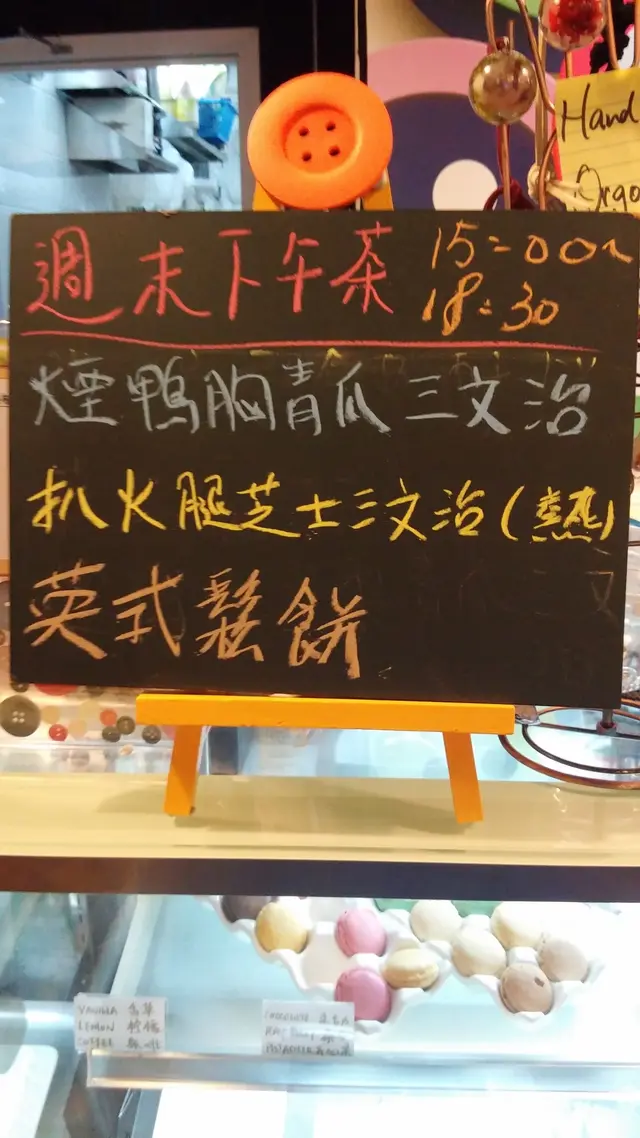 Hand
Orga
週末下午茶 15:00~
18:30
煙鴨胸青瓜三文治
扒火腿芝士三文治(熱)
英式鬆餅
VANILLA 香草
LEMON 檸檬
COFFEE 咖啡